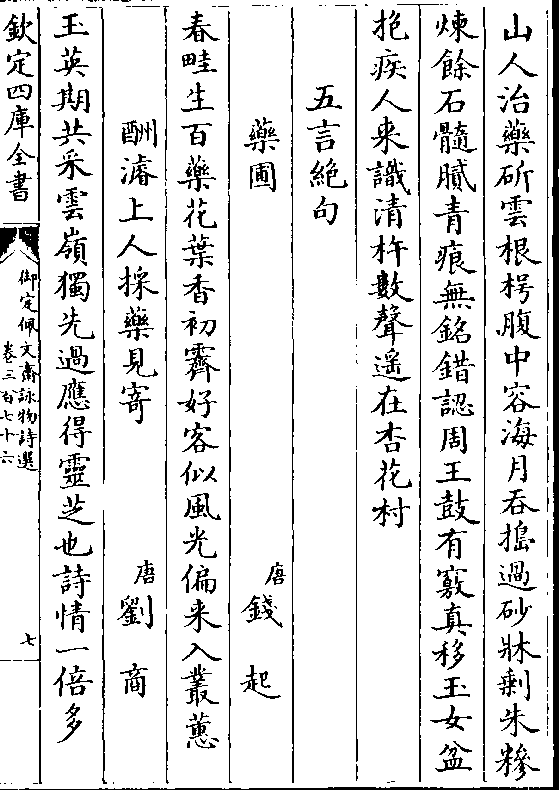 山人治藥斫雲根枵腹中容海月吞搗過砂牀剩朱糝
煉餘石髓膩青痕無銘錯認周王鼓有竅真移玉女盆
抱疾人來識清杵數聲遥在杏花村
五言絶句
藥圃　唐　錢起
春畦生百藥花葉香初霽好客似風光偏来入叢蕙
酬濬上人採藥見寄　唐　劉商
玉英期共采雲嶺獨先過應得靈芝也詩情一倍多
欽定四庫全書
御定佩文齋詠物詩選
卷三百七十六
七